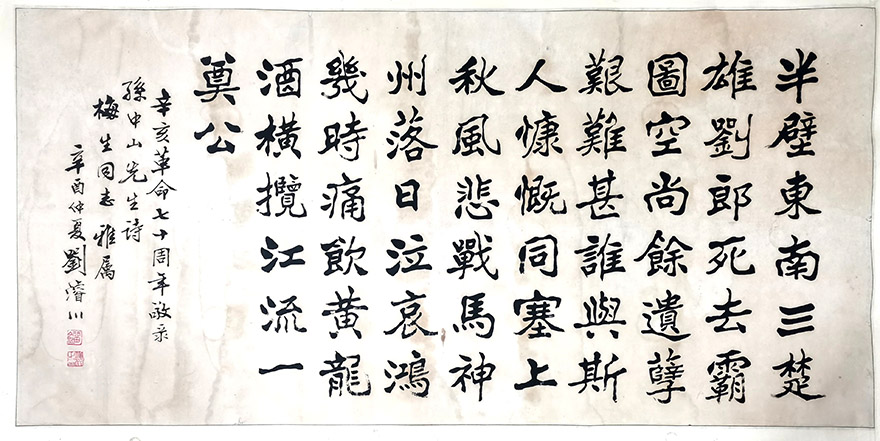 半壁東南三楚
雄劉郎死去霸
圖空尚餘遺孽
艱難甚誰與斯
人慷慨同塞上
秋風悲戰馬神
州落日泣哀鴻
幾時痛飲黃龍
酒橫攬江流一
奠公
辛亥革命七十周年敬录
孫中山先生詩
梅生同志雅属
辛酉仲夏劉濬川